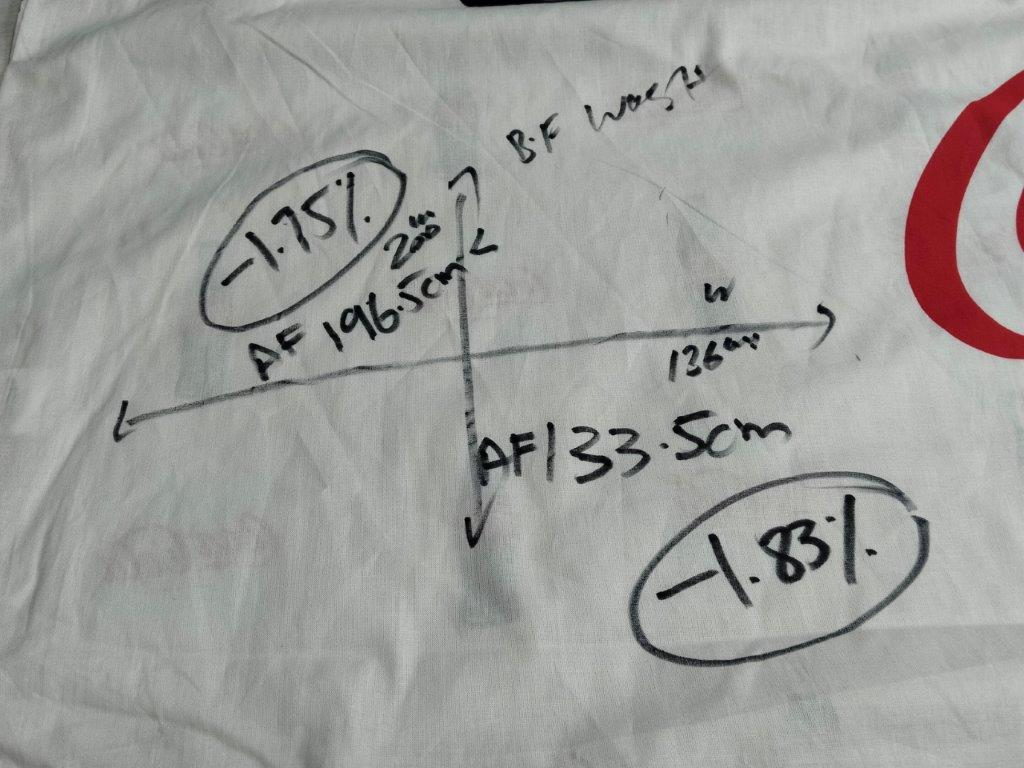 B.F wash
-1.75%
200cm
L
AF 196.5cm
W
136cm
AF 133.5cm
-1.83%